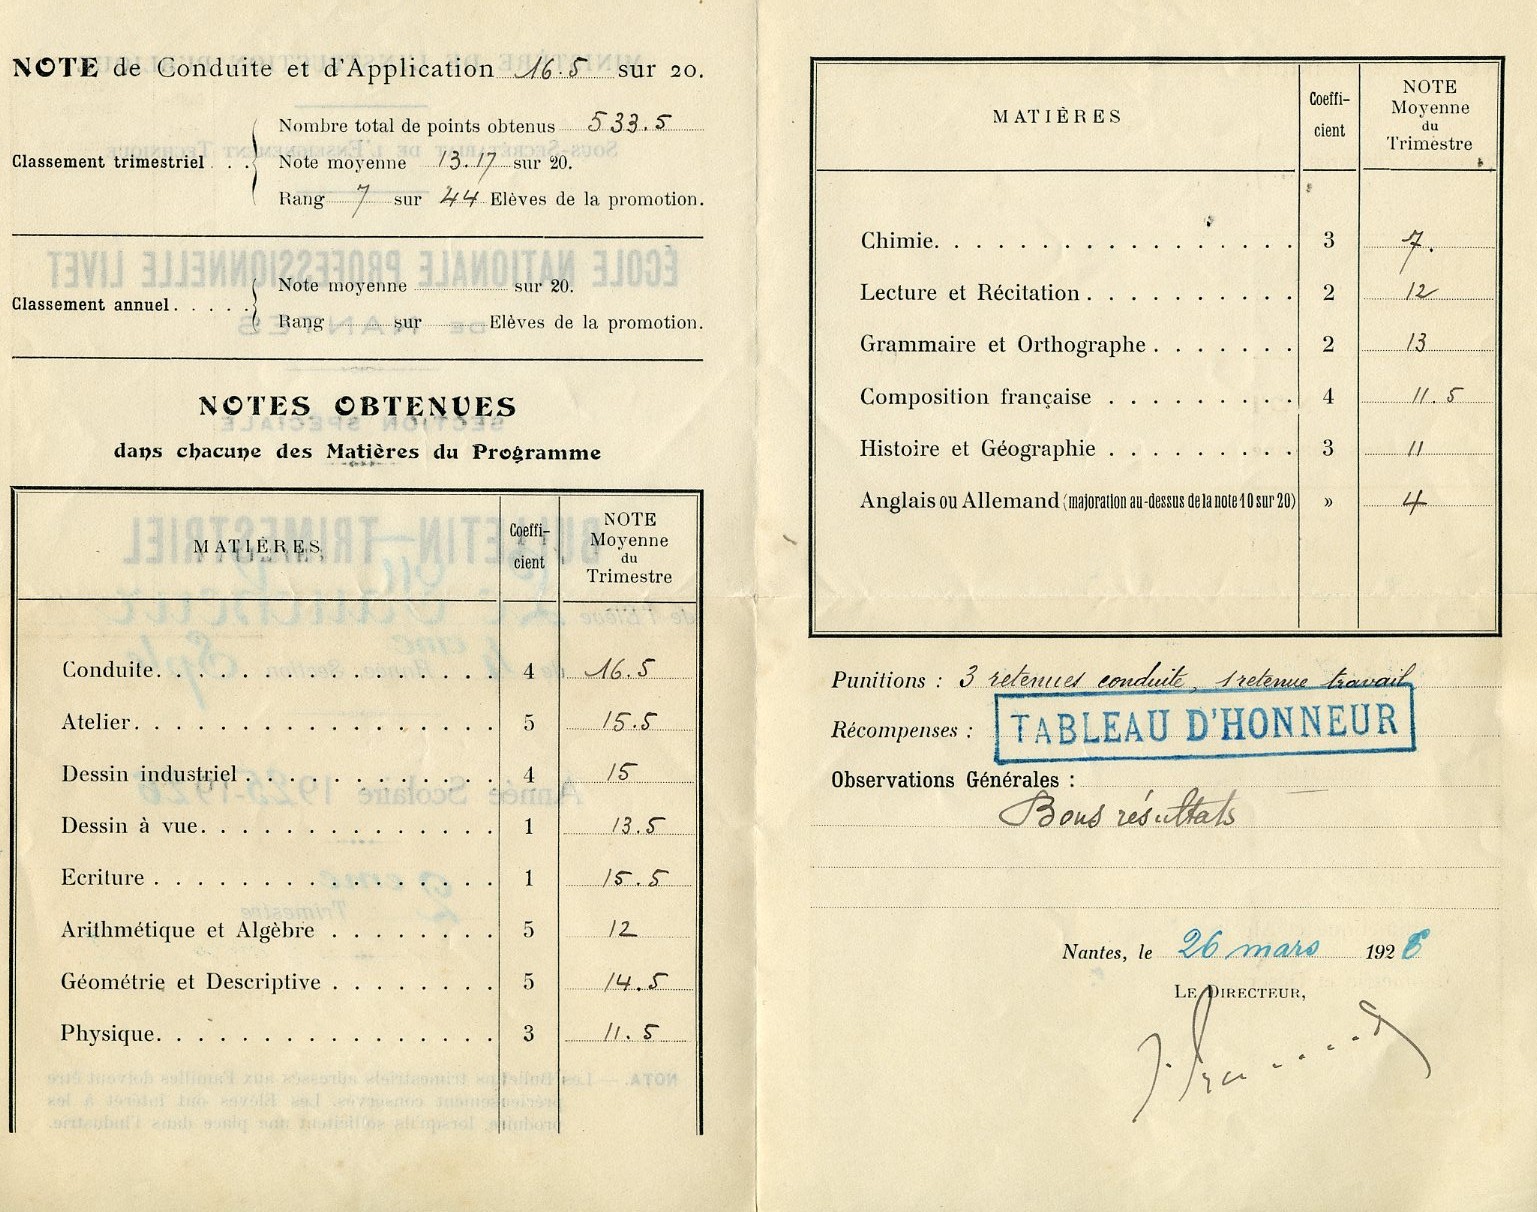 NOTE de Conduite et d'Application 16.5 sur 20.
Classement trimestriel . . .
Nombre total de points obtenus 533.5
Note moyenne 13.17 sur 20.
Rang 7 sur 44 Elèves de la promotion.
Classement annuel . . . . .
Note moyenne sur 20.
Rang sur Elèves de la promotion.
NOTES OBTENUES
dans chacune des Matières du Programme
MATIÈRES Coeffi-cient NOTE Moyenne du Trimestre
Conduite. 4 16.5
Atelier. 5 15.5
Dessin industriel 4 15
Dessin à vue. 1 13.5
Ecriture 1 15.5
Arithmétique et Algèbre 5 12
Géométrie et Descriptive 5 14.5
Physique. 3 11.5
MATIÈRES Coeffi-cient NOTE Moyenne du Trimestre
Chimie. 3 7.
Lecture et Récitation 2 12
Grammaire et Orthographe 2 13
Composition française 4 11.5
Histoire et Géographie 3 11
Anglais ou Allemand (majoration au-dessus de la note 10 sur 20) » 4
Punitions : 3 retenues conduite, 1 retenue travail
Récompenses : TABLEAU D'HONNEUR
Observations Générales :
Bons résultats
Nantes, le 26 mars 1926
LE DIRECTEUR,